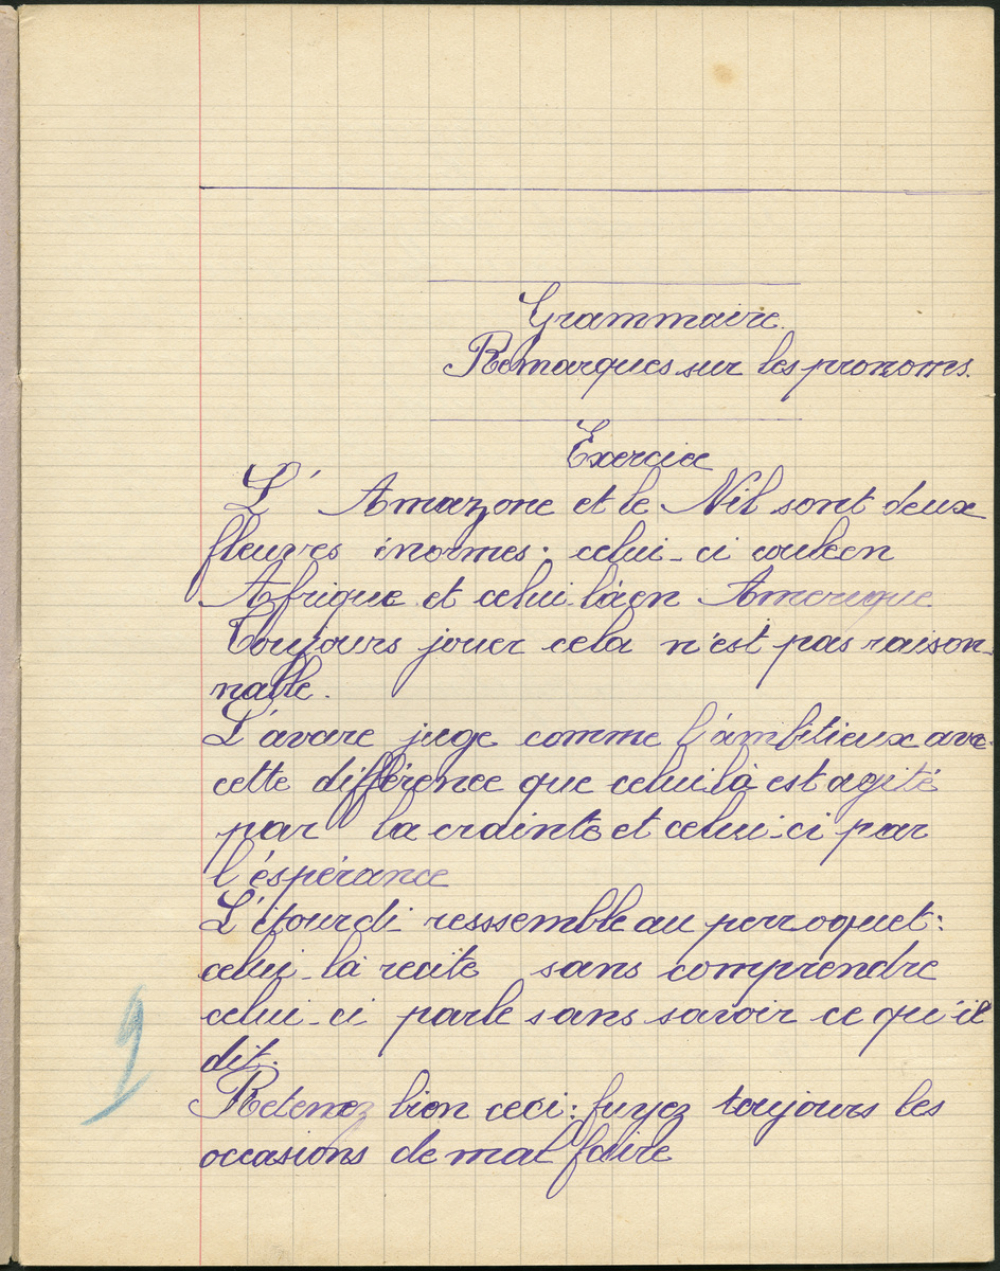 Grammaire.
Remarques sur les pronoms.
Exercice
L' Amazone et le Nil sont deux
fleuves inormes : celui-ci coule en
Afrique et celui-là en Amerique
Toujours jouer cela n'est pas raison-
nable.
L'avare juge comme l'ambitieux avec
cette différence que celui là est agité
par la crainte et celui-ci par
l'éspérance
L'étourdi resssemble au perroquet :
celui-là recite sans comprendre
celui-ci parle sans savoir ce qu'il
dit.
Retenez bien ceci : fuyez toujours les
occasions de mal faire
9